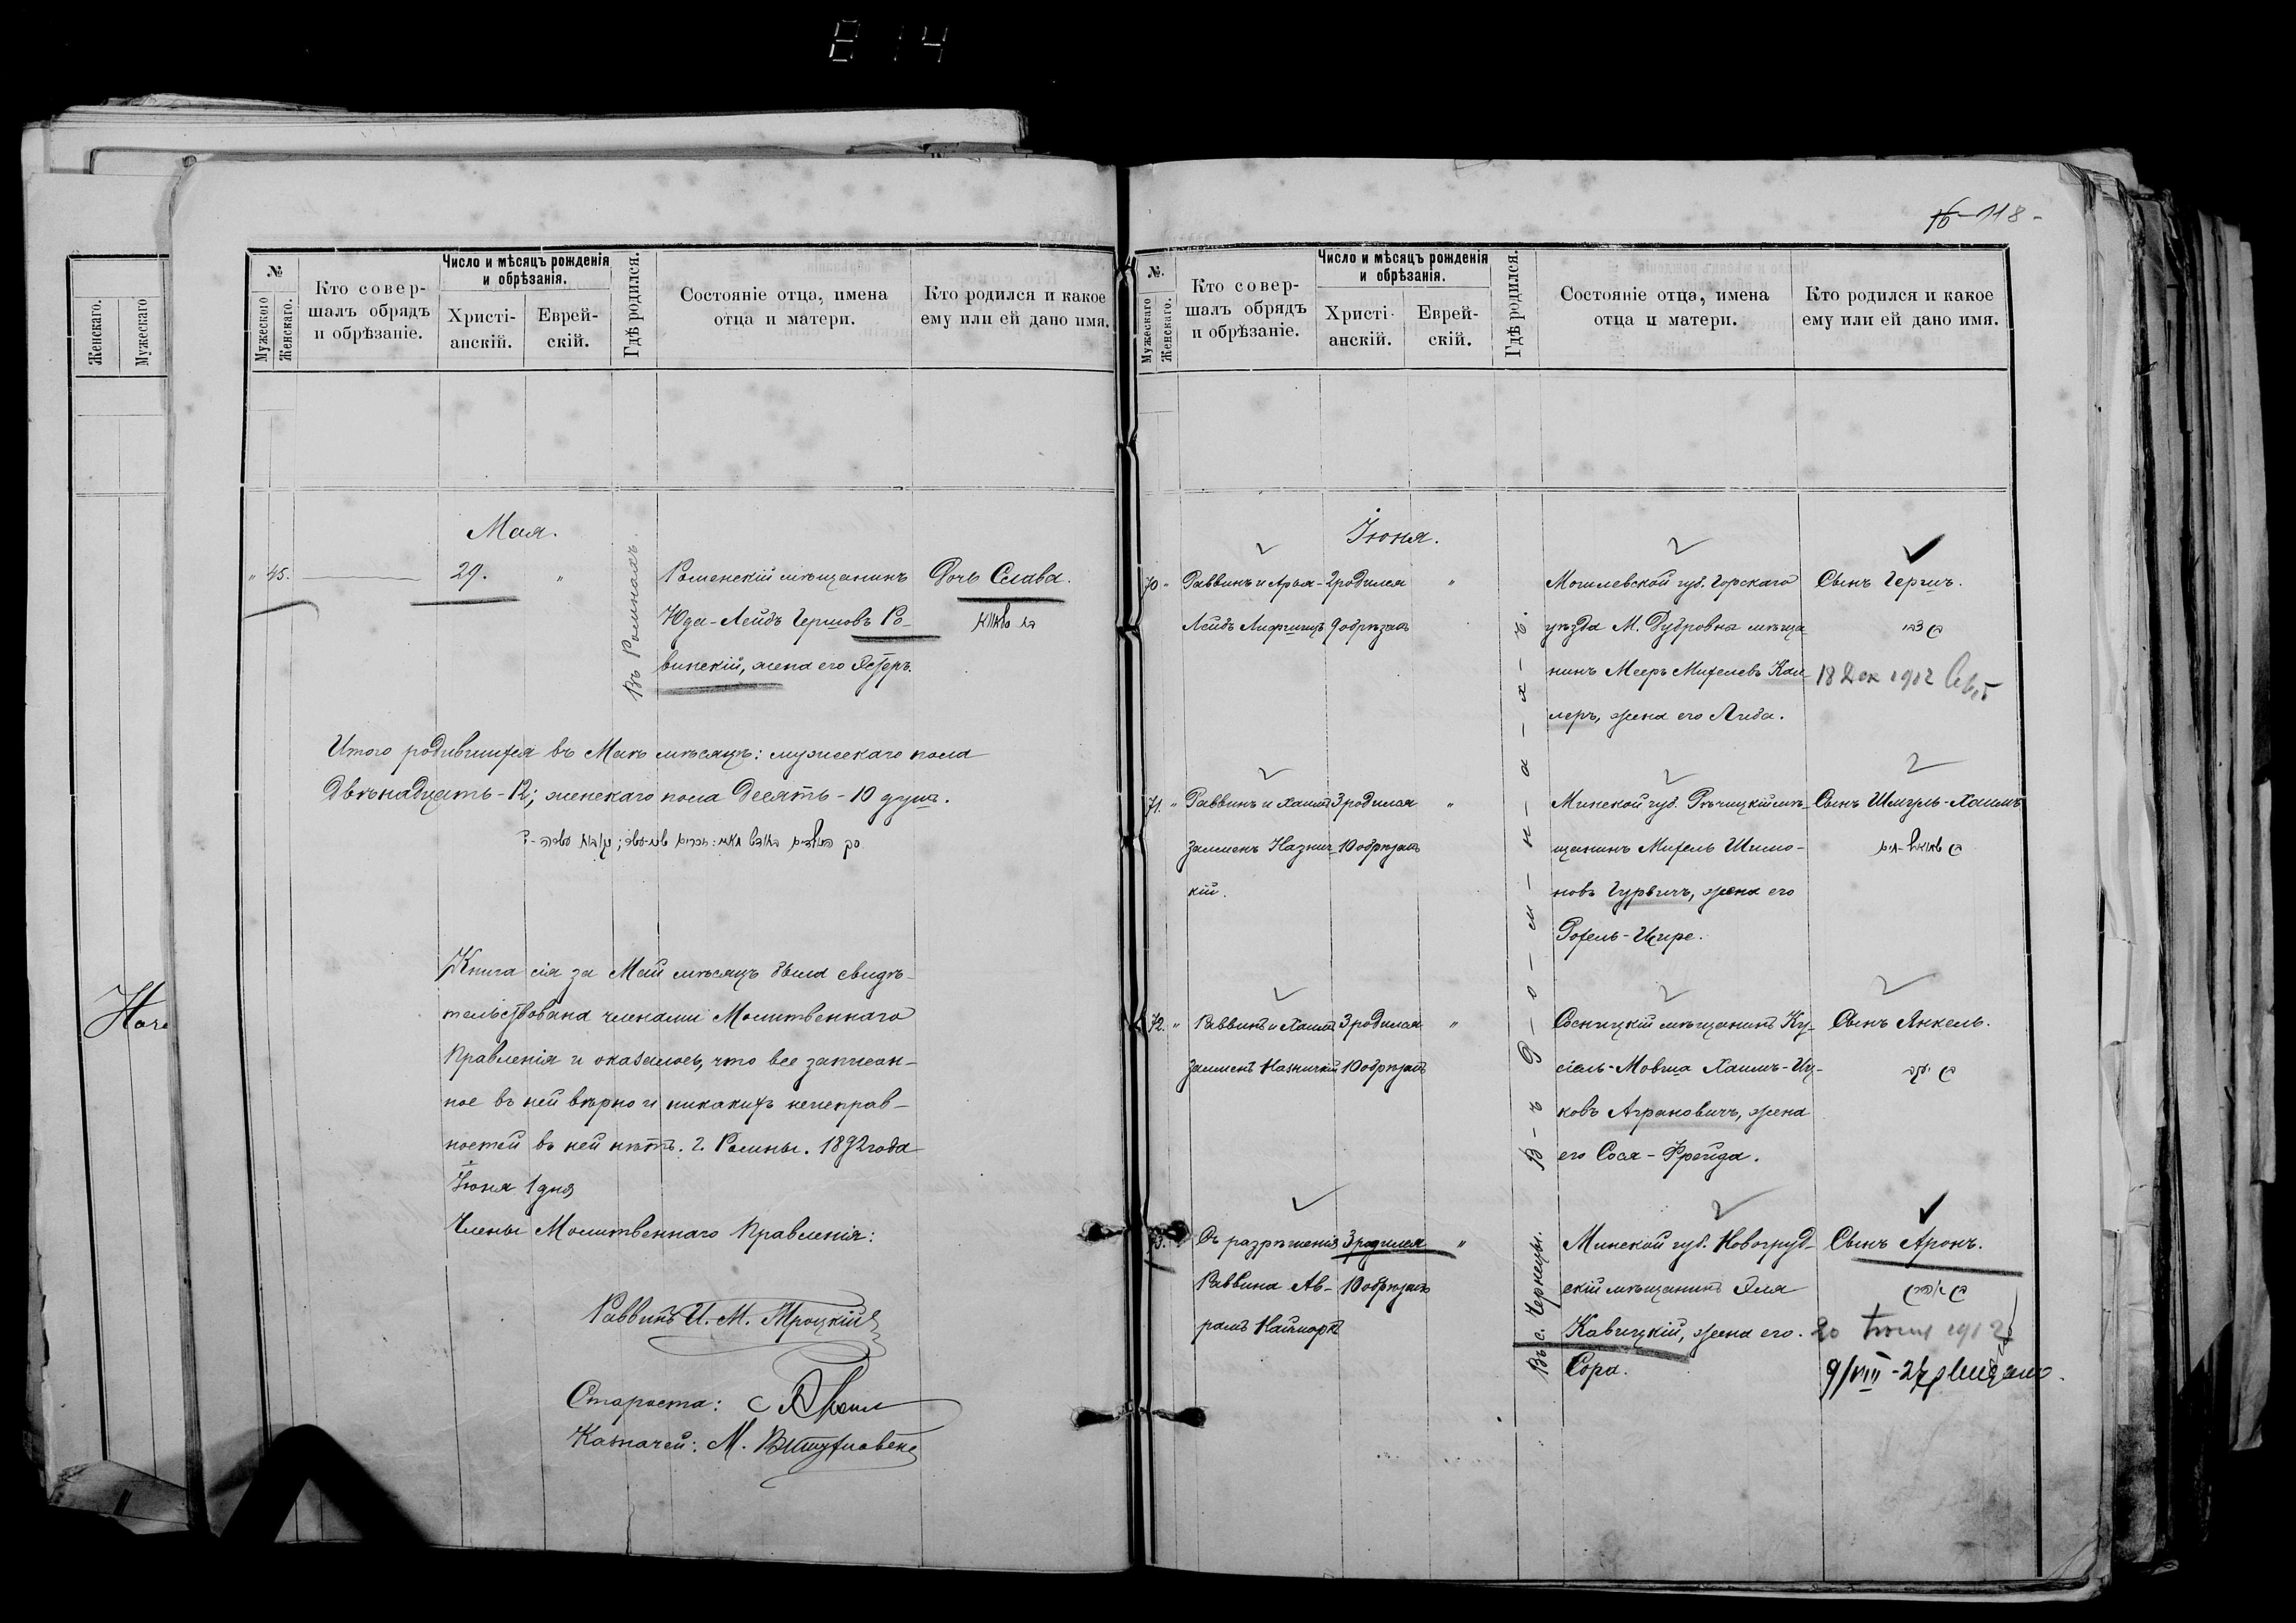 814
16 - 118 -
Женскаго.
Мужескаго
№
Мужескаго
Женскаго.
Кто совер-
шалъ обрядъ
и обрѣзаніе.
Число и мѣсяцъ рожденія
и обрѣзанія.
Христі-
анскій.
Еврей-
скій.
Гдѣ родился.
Состояніе отца, имена
отца и матери.
Кто родился и какое
ему или ей дано имя.
Мая.
" 45.
29.
"
Въ Ромнахъ.
Роменскій мѣщанинъ
Юда-Лейбъ Гершовъ Ро-
винскій, жена его Эстеръ.
Дочь Слава.
Итого родившихся въ Маѣ мѣсяцѣ: мужескаго пола
Двѣнадцать - 12; женскаго пола Десять - 10 душъ.
Книга сія за Май мѣсяцъ была свидѣ-
тельствована членами Молитвеннаго
Правленія и оказалось, что все записан-
ное въ ней вѣрно и никакихъ неисправ-
ностей въ ней нѣтъ. г. Ромны. 1892 года
Іюня 1 дня
Члены Молитвеннаго Правленія:
Раввинъ И. М. Троцкій
Староста:
Казначей: М.
№.
Мужескаго
Женскаго.
Кто совер-
шалъ обрядъ
и обрѣзаніе.
Число и мѣсяцъ рожденія
и обрѣзанія.
Христі-
анскій.
Еврей-
скій.
Гдѣ родился.
Состояніе отца, имена
отца и матери.
Кто родился и какое
ему или ей дано имя.
Іюня.
В-ъ Р-о-м-н-а-х-ъ.
70 "
Раввинъ и Арья-
Лейбъ Лифшицъ
2 родился
9 обрѣзанъ
"
Могилевской губ. Горскаго
уѣзда М. Дубровна мѣща-
нинъ Мееръ Михелевъ
леръ, жена его Либа.
Сынъ Гершъ.
18 Дек 1912
71. "
Раввинъ и Хаимъ
Залменъ Назниц-
кій.
3 родился
10 обрѣзанъ
"
Минской губ. Рѣчицкій мѣ-
щанинъ Михель Шимо-
новъ Гурвичъ, жена его
Рохель-Ципре.
Сынъ Шмуль-Хаимъ
72. "
Раввинъ и Хаимъ
Залменъ Назницкій
3 родился
10 обрѣзанъ
"
Сосницкій мѣщанинъ Ку-
сіель-Мовша Хаимъ-Иц-
ковъ Аграновичъ, жена
его Сося-Фрейда.
Сынъ Янкель.
בן יעקב
73. "
Съ разрѣшенія
Раввина Ав-
рамъ Наймаркъ
3 родился
10 обрѣзанъ
"
Въ с. Чернецы.
Минской губ. Новогруд-
скій мѣщанинъ Эля
Кавицкій, жена его
Сора.
Сынъ Аронъ.
בן אהרן
20 Іюня 1912
9/VIII - 27